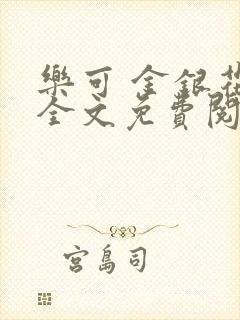 樂可 金銀花
全文免費閱
宮島司